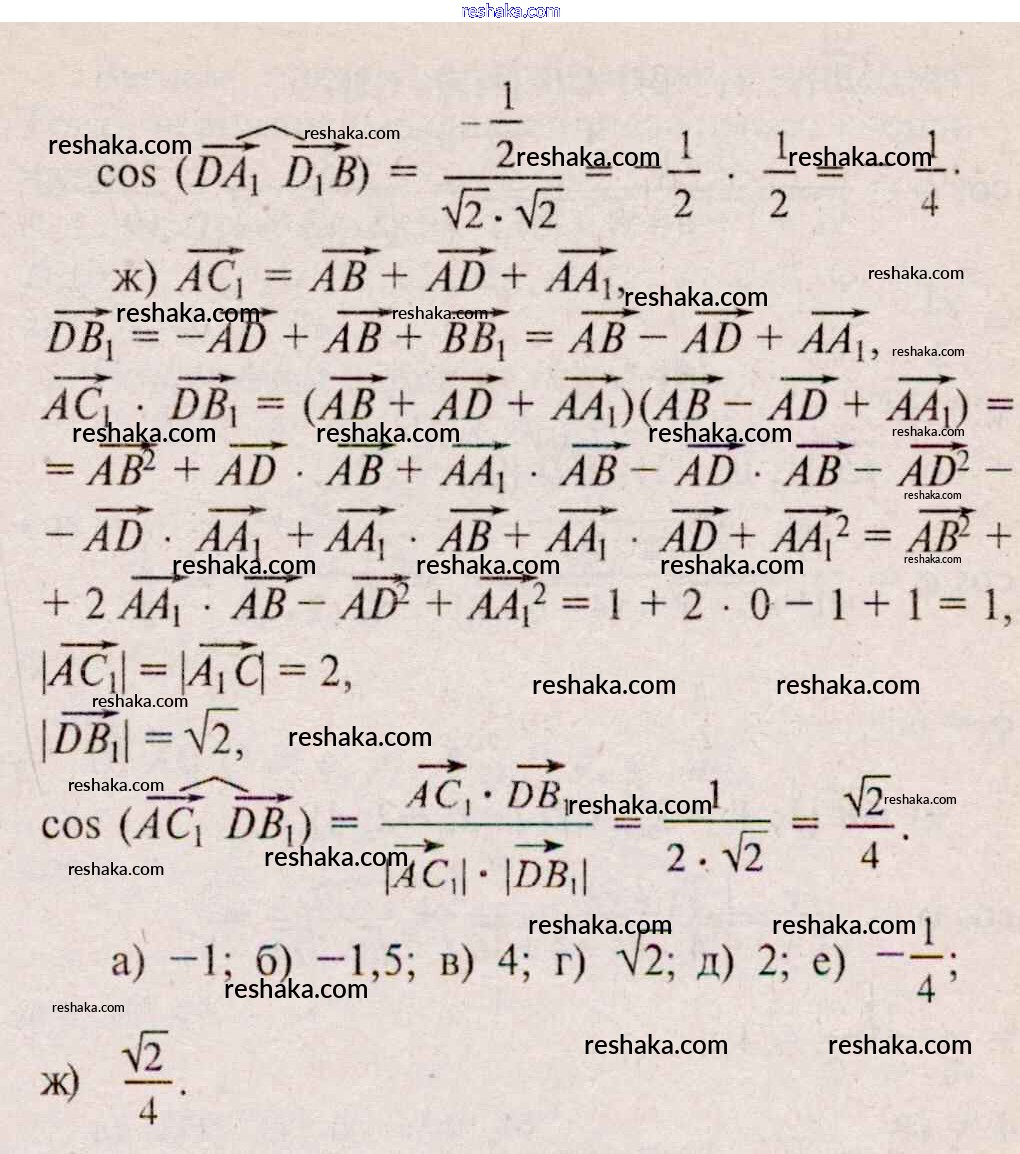 reshaka.com
cos (DA₁ D₁B) = (−1/2)/(√2 · √2) = −1/2 · 1/2 = −1/4.
ж) AC₁ = AB + AD + AA₁,
DB₁ = −AD + AB + BB₁ = AB − AD + AA₁,
AC₁ · DB₁ = (AB + AD + AA₁)(AB − AD + AA₁) =
= AB² + AD · AB + AA₁ · AB − AD · AB − AD² −
− AD · AA₁ + AA₁ · AB + AA₁ · AD + AA₁² = AB² +
+ 2 AA₁ · AB − AD² + AA₁² = 1 + 2 · 0 − 1 + 1 = 1,
|AC₁| = |A₁C| = 2,
|DB₁| = √2,
cos (AC₁ DB₁) = (AC₁ · DB₁)/(|AC₁| · |DB₁|) = 1/(2 · √2) = √2/4.
а) −1; б) −1,5; в) 4; г) √2; д) 2; е) −1/4;
ж) √2/4.